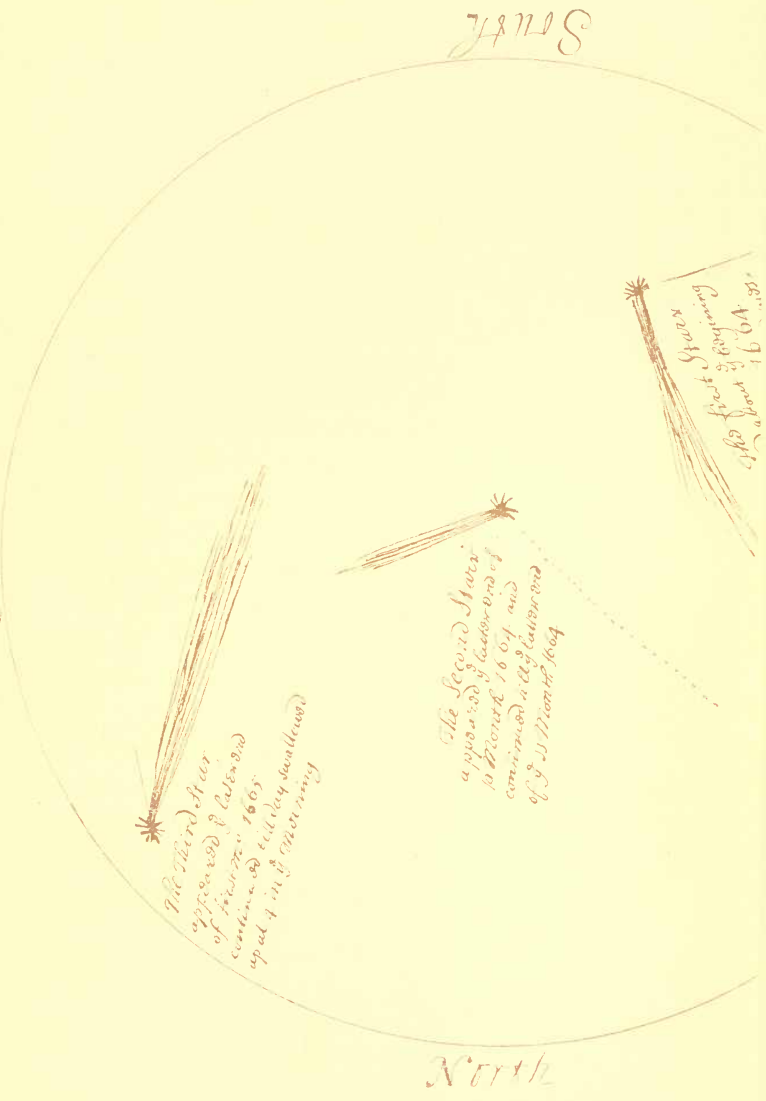 South
The first Starr
about yͤ beginning
1664.
The Second Starr
appeared yͤ latter end of
10 Month 1664 and
continued till yͤ latter end
of yͤ 11 Month 1664
The Third Star
appeared yͤ latter end
of first mo: 1665
continued till day swallowed
up at 4 in yͤ morning
North